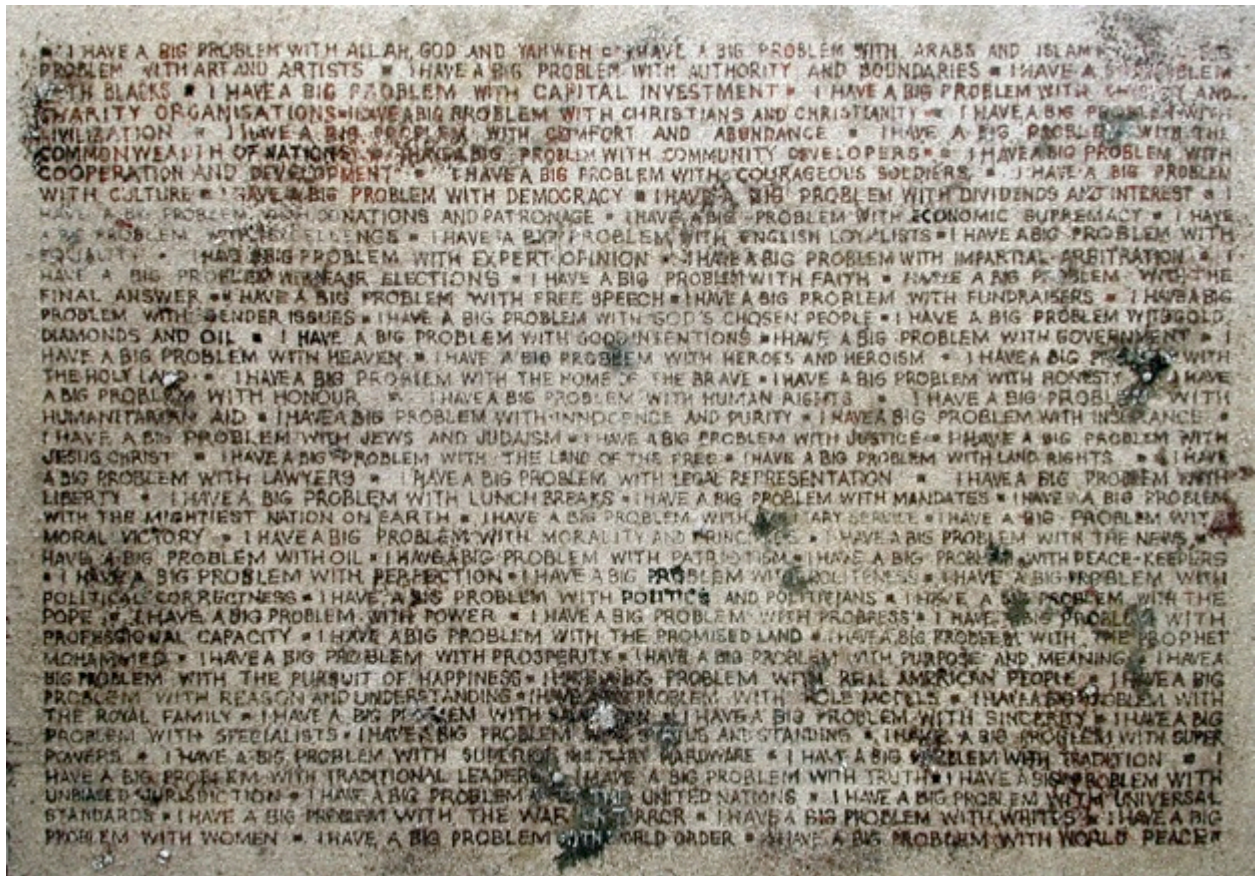 I HAVE A BIG PROBLEM WITH ALLAH, GOD AND YAHWEH HAVE A BIG PROBLEM WITH ARABS AND ISLAM
PROBLEM WITH ART AND ARTISTS * I HAVE A BIG PROBLEM WITH AUTHORITY AND BOUNDARIES * I HAVE A PROBLEM
WITH BLACKS * I HAVE A BIG PROBLEM WITH CAPITAL INVESTMENT * I HAVE A BIG PROBLEM WITH AND
CHARITY ORGANISATIONS * I HAVE A BIG PROBLEM WITH CHRISTIANS AND CHRISTIANITY * I HAVE A BIG PROBLEM WITH
CIVILIZATION * I HAVE A BIG PROBLEM WITH COMFORT AND ABUNDANCE * I HAVE A BIG PROBLEM WITH THE
COMMONWEALTH OF NATIONS * I HAVE A BIG PROBLEM WITH COMMUNITY DEVELOPERS * I HAVE A BIG PROBLEM WITH
COOPERATION AND DEVELOPMENT * I HAVE A BIG PROBLEM WITH COURAGEOUS SOLDIERS * I HAVE A BIG PROBLEM
WITH CULTURE * I HAVE A BIG PROBLEM WITH DEMOCRACY * I HAVE A BIG PROBLEM WITH DIVIDENDS AND INTEREST * I
HAVE A BIG PROBLEM WITH DONATIONS AND PATRONAGE * I HAVE A BIG PROBLEM WITH ECONOMIC SUPREMACY * I HAVE
A BIG PROBLEM WITH EXCELLENCE * I HAVE A BIG PROBLEM WITH ENGLISH LOYALISTS * I HAVE A BIG PROBLEM WITH
EQUALITY * I HAVE A BIG PROBLEM WITH EXPERT OPINION * I HAVE A BIG PROBLEM WITH IMPARTIAL ARBITRATION * I
HAVE A BIG PROBLEM WITH FAIR ELECTIONS * I HAVE A BIG PROBLEM WITH FAITH * I HAVE A BIG PROBLEM WITH THE
FINAL ANSWER * I HAVE A BIG PROBLEM WITH FREE SPEECH * I HAVE A BIG PROBLEM WITH FUNDRAISERS * I HAVE A BIG
PROBLEM WITH GENDER ISSUES * I HAVE A BIG PROBLEM WITH GOD'S CHOSEN PEOPLE * I HAVE A BIG PROBLEM WITH GOLD,
DIAMONDS AND OIL * I HAVE A BIG PROBLEM WITH GOOD INTENTIONS * I HAVE A BIG PROBLEM WITH GOVERNMENT * I
HAVE A BIG PROBLEM WITH HEAVEN * I HAVE A BIG PROBLEM WITH HEROES AND HEROISM * I HAVE A BIG PROBLEM WITH
THE HOLY LAND * I HAVE A BIG PROBLEM WITH THE HOME OF THE BRAVE * I HAVE A BIG PROBLEM WITH HONESTY * I HAVE
A BIG PROBLEM WITH HONOUR * I HAVE A BIG PROBLEM WITH HUMAN RIGHTS * I HAVE A BIG PROBLEM WITH
HUMANITARIAN AID * I HAVE A BIG PROBLEM WITH INNOCENCE AND PURITY * I HAVE A BIG PROBLEM WITH INSURANCE *
I HAVE A BIG PROBLEM WITH JEWS AND JUDAISM * I HAVE A BIG PROBLEM WITH JUSTICE * I HAVE A BIG PROBLEM WITH
JESUS CHRIST * I HAVE A BIG PROBLEM WITH THE LAND OF THE FREE * I HAVE A BIG PROBLEM WITH LAND RIGHTS * I HAVE
A BIG PROBLEM WITH LAWYERS * I HAVE A BIG PROBLEM WITH LEGAL REPRESENTATION * I HAVE A BIG PROBLEM WITH
LIBERTY * I HAVE A BIG PROBLEM WITH LUNCH BREAKS * I HAVE A BIG PROBLEM WITH MANDATES * I HAVE A BIG PROBLEM
WITH THE MIGHTIEST NATION ON EARTH * I HAVE A BIG PROBLEM WITH MILITARY SERVICE * I HAVE A BIG PROBLEM WITH
MORAL VICTORY * I HAVE A BIG PROBLEM WITH MORALITY AND PRINCIPLES * I HAVE A BIG PROBLEM WITH THE NEWS * I
HAVE A BIG PROBLEM WITH OIL * I HAVE A BIG PROBLEM WITH PATRIOTISM * I HAVE A BIG PROBLEM WITH PEACE-KEEPERS
* I HAVE A BIG PROBLEM WITH PERFECTION * I HAVE A BIG PROBLEM WITH POLITENESS * I HAVE A BIG PROBLEM WITH
POLITICAL CORRECTNESS * I HAVE A BIG PROBLEM WITH POLITICS AND POLITICIANS * I HAVE A BIG PROBLEM WITH THE
POPE * I HAVE A BIG PROBLEM WITH POWER * I HAVE A BIG PROBLEM WITH PROGRESS * I HAVE A BIG PROBLEM WITH
PROFESSIONAL CAPACITY * I HAVE A BIG PROBLEM WITH THE PROMISED LAND * I HAVE A BIG PROBLEM WITH THE PROPHET
MOHAMMED * I HAVE A BIG PROBLEM WITH PROSPERITY * I HAVE A BIG PROBLEM WITH PURPOSE AND MEANING * I HAVE A
BIG PROBLEM WITH THE PURSUIT OF HAPPINESS * I HAVE A BIG PROBLEM WITH REAL AMERICAN PEOPLE * I HAVE A BIG
PROBLEM WITH REASON AND UNDERSTANDING * I HAVE A BIG PROBLEM WITH ROLE MODELS * I HAVE A BIG PROBLEM WITH
THE ROYAL FAMILY * I HAVE A BIG PROBLEM WITH * I HAVE A BIG PROBLEM WITH SINCERITY * I HAVE A BIG
PROBLEM WITH SPECIALISTS * I HAVE A BIG PROBLEM WITH STATUS AND STANDING * I HAVE A BIG PROBLEM WITH SUPER
POWERS * I HAVE A BIG PROBLEM WITH SUPERIOR MILITARY HARDWARE * I HAVE A BIG PROBLEM WITH TRADITION * I
HAVE A BIG PROBLEM WITH TRADITIONAL LEADERS * I HAVE A BIG PROBLEM WITH TRUTH * I HAVE A BIG PROBLEM WITH
UNBIASED JURISDICTION * I HAVE A BIG PROBLEM WITH THE UNITED NATIONS * I HAVE A BIG PROBLEM WITH UNIVERSAL
STANDARDS * I HAVE A BIG PROBLEM WITH THE WAR TERROR * I HAVE A BIG PROBLEM WITH WHITES * I HAVE A BIG
PROBLEM WITH WOMEN * I HAVE A BIG PROBLEM WITH WORLD ORDER * I HAVE A BIG PROBLEM WITH WORLD PEACE *